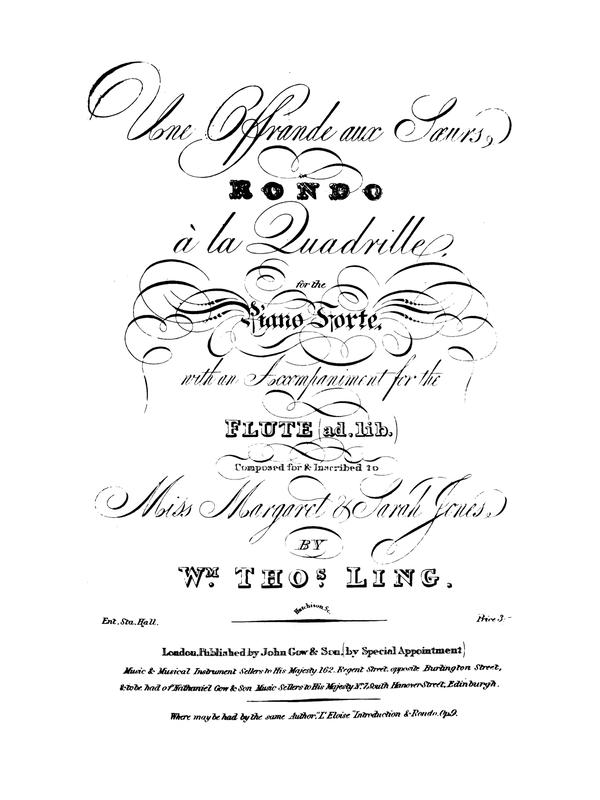 Une Offrande aux Sœurs,
RONDO
à la Quadrille,
for the
Piano Forte,
with an Accompaniment for the
FLUTE (ad. lib.)
Composed for & Inscribed to
Miss Margaret & Sarah Jones,
BY
WM. THOS. LING.
Hutchison Sc.
Ent. Sta. Hall. Price 3:-
London, Published by John Gow & Son, (by Special Appointment)
Music & Musical Instrument Sellers to His Majesty 162, Regent Street, opposite Burlington Street,
& to be had of Nathaniel Gow & Son Music Sellers to His Majesty No. 7, South Hanover Street, Edinburgh.
Where may be had by the same Author, "L'Eloise" Introduction & Rondo, Op. 9.